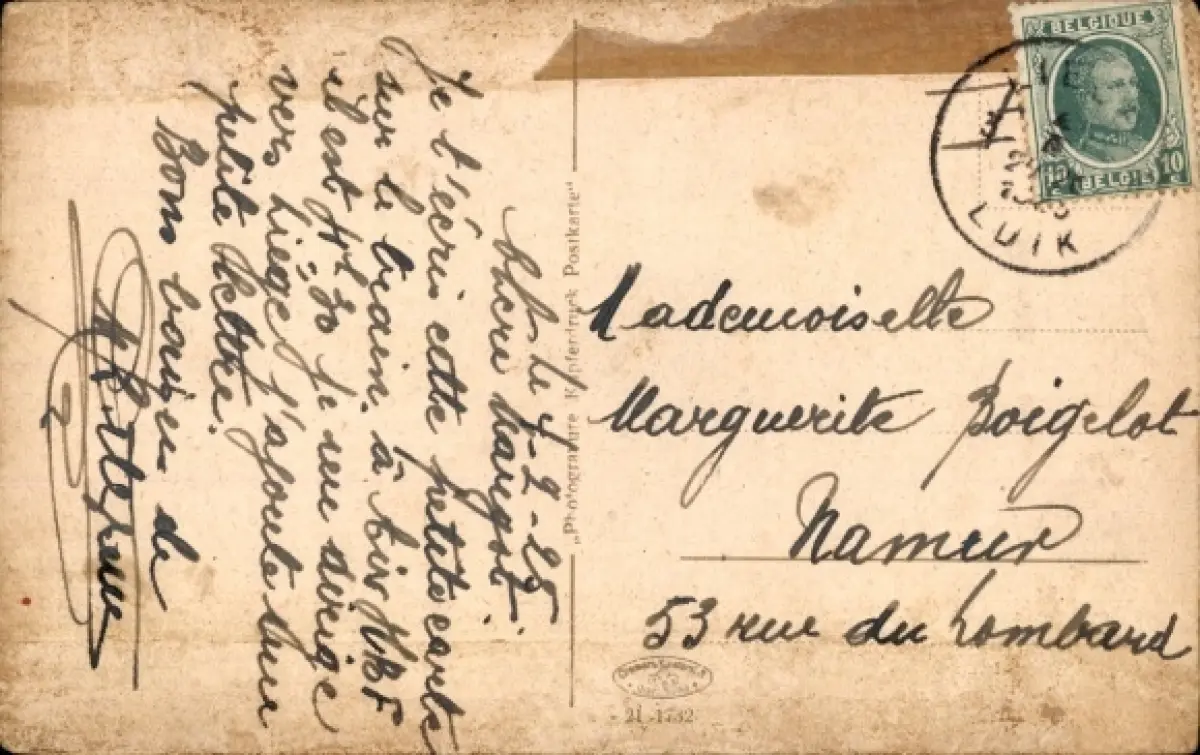 le 4-2-25
Chère Margot.
Je t'écris cette petite carte
sur le train, à
il est 4h 30 je me dirige
vers Liège j'ajoute une
petite lettre.
Bons baisers de
"Photogravure Kupferdruck Postkarte"
BELGIQUE
10
BELGIË
LUIK
Mademoiselle
Marguerite Boigelot
Namur
53 rue du Lombard
21-1732